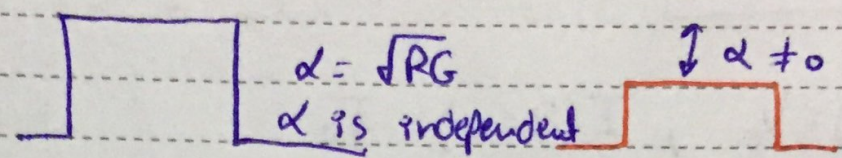 α = √RG
α is independent
α ≠ 0